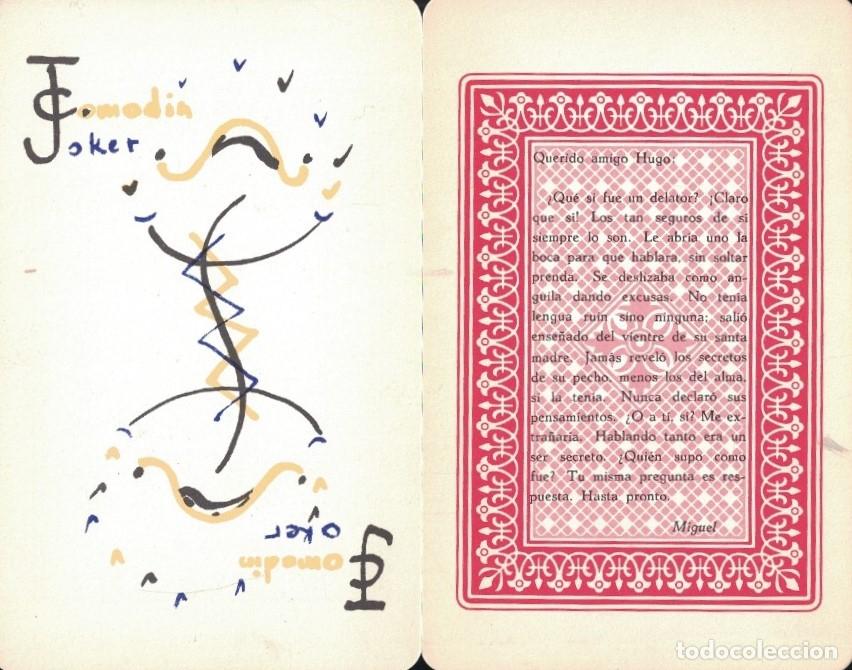 Comodin
Joker
Joker
Comodin
Querido amigo Hugo:
¿Qué si fue un delator? ¡Claro
que si! Los tan seguros de si
siempre lo son. Le abría uno la
boca para que hablara, sin soltar
prenda. Se deslizaba como an-
guila dando excusas. No tenía
lengua ruin sino ninguna; salió
enseñado del vientre de su santa
madre. Jamás reveló los secretos
de su pecho, menos los del alma,
si la tenía. Nunca declaró sus
pensamientos. ¿O a tí, sí? Me ex-
trañaría. Hablando tanto era un
ser secreto. ¿Quién supo como
fue? Tu misma pregunta es res-
puesta. Hasta pronto.
Miguel
todocoleccion